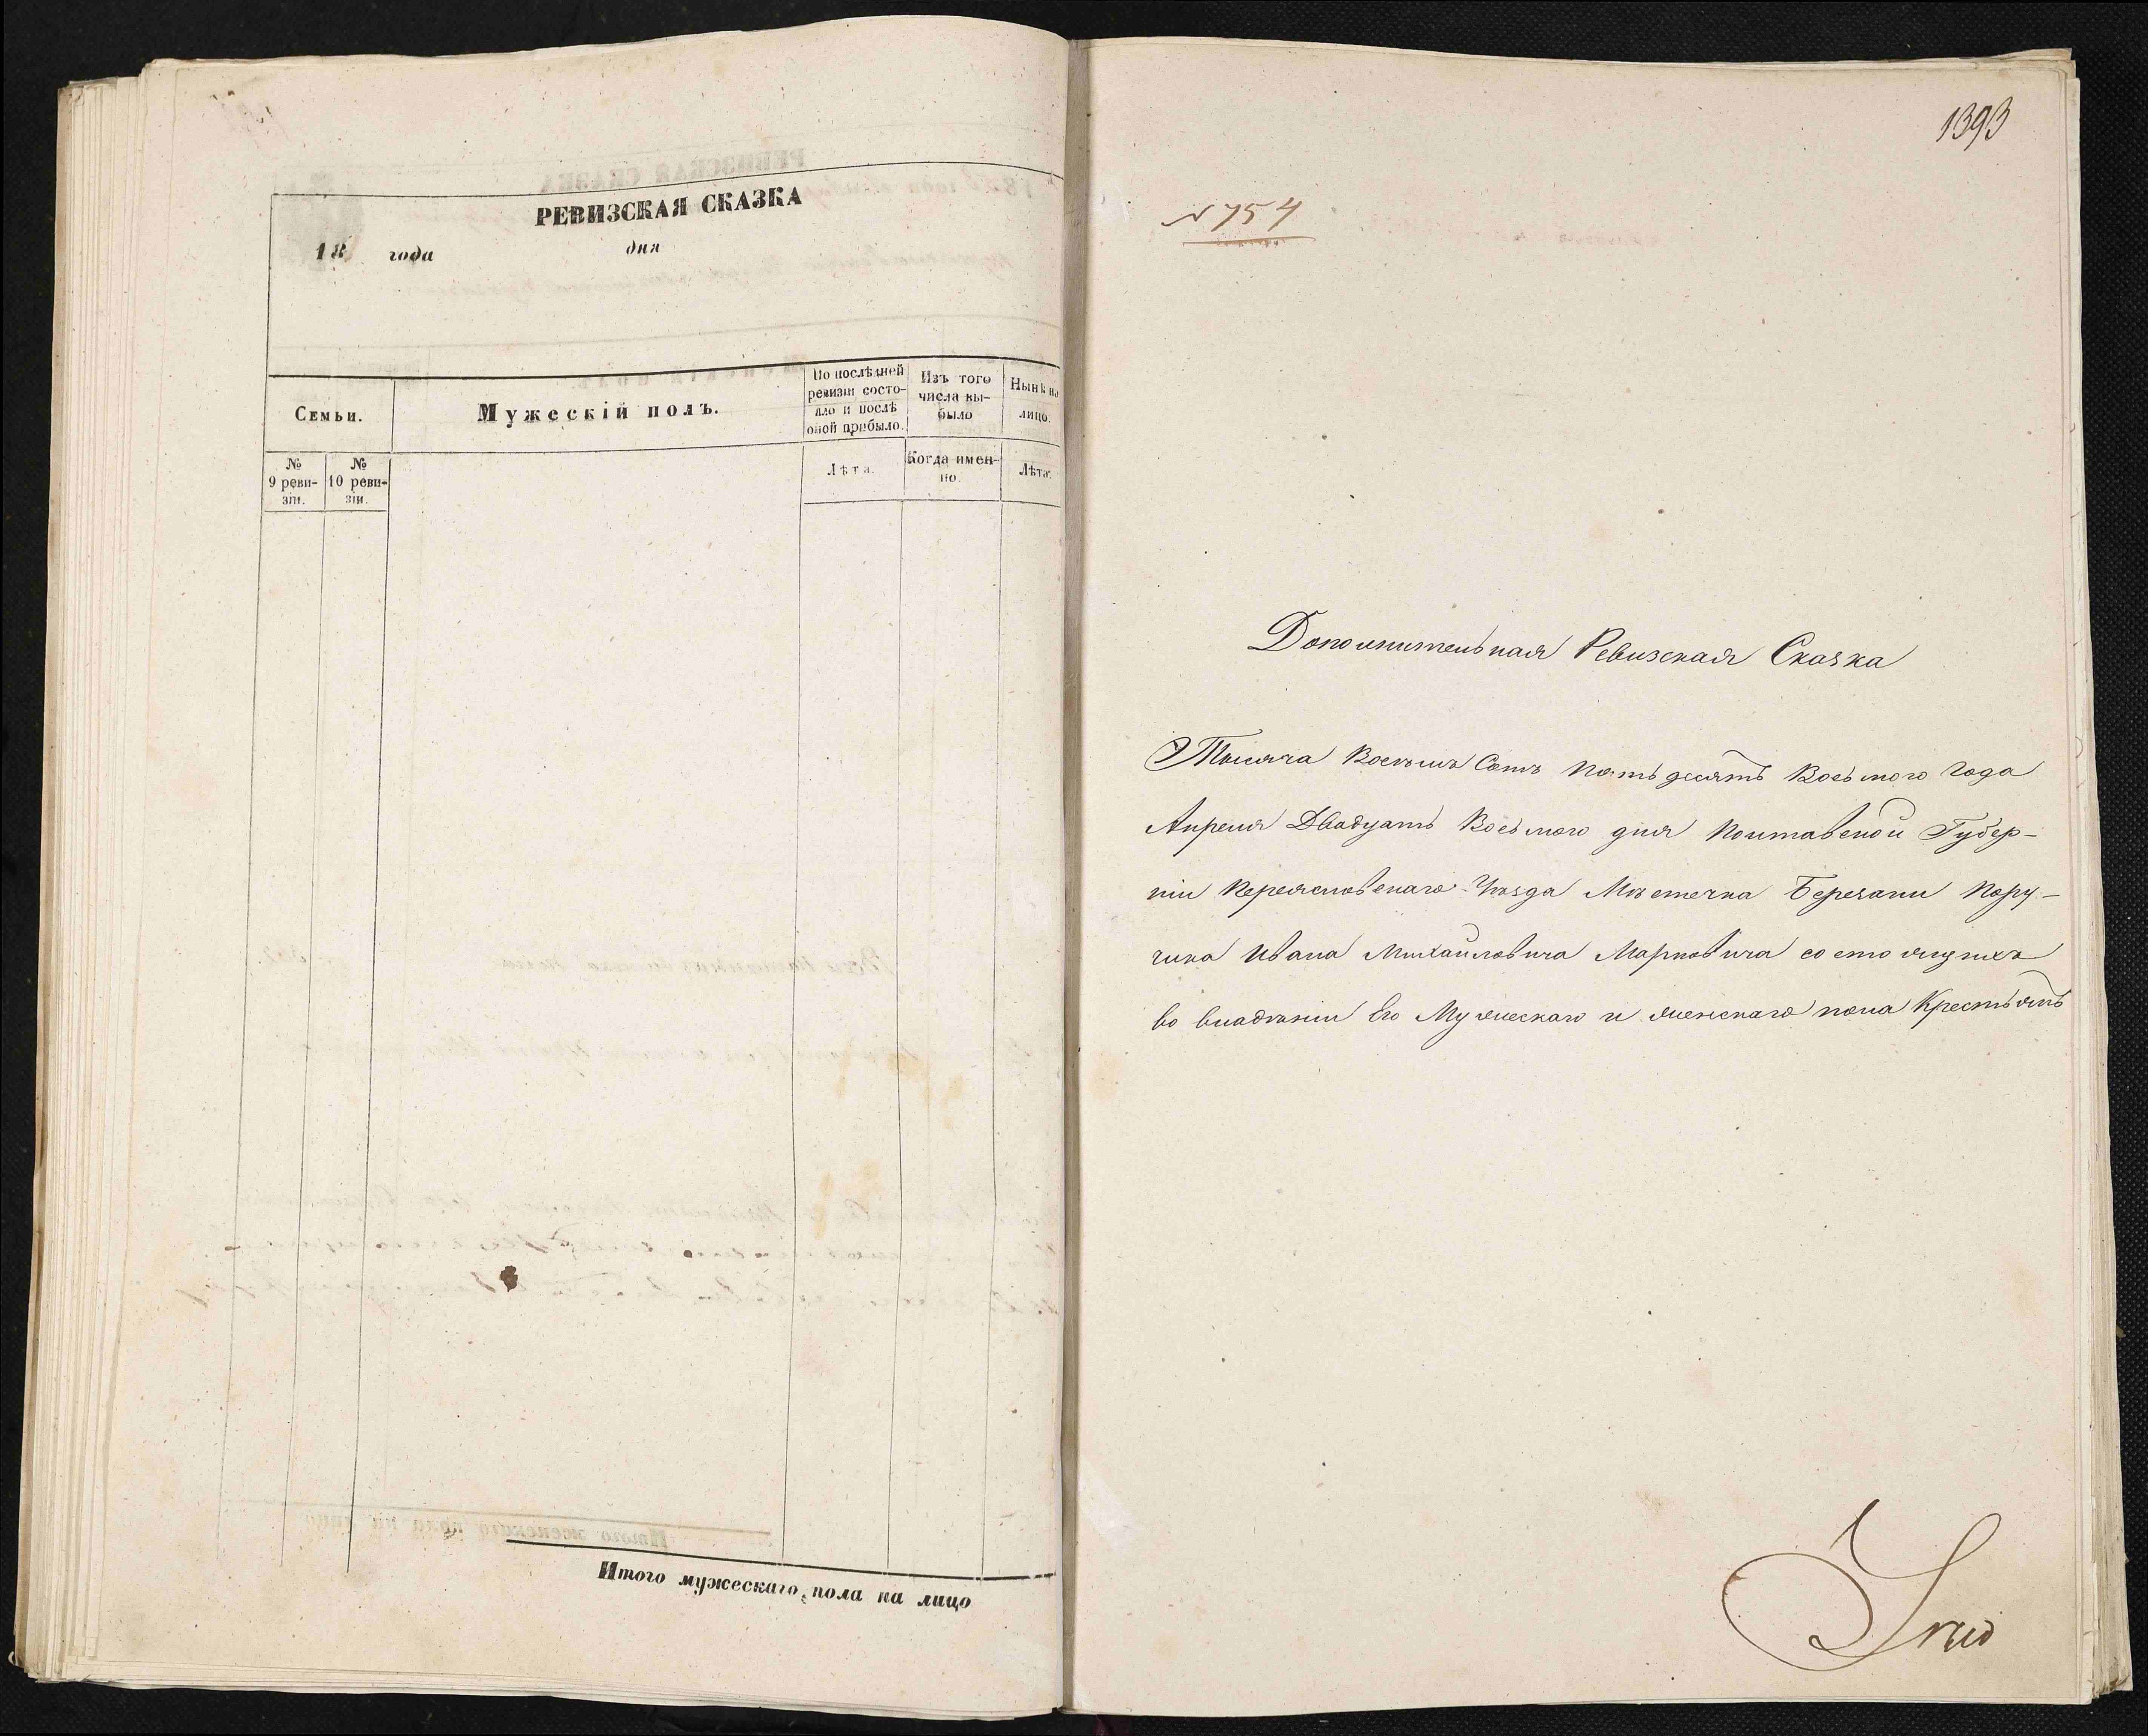 РЕВИЗСКАЯ СКАЗКА
18 года дня
Семьи.
Мужескій полъ.
По послѣдней
ревизіи состо-
яло и послѣ
оной прибыло.
Изъ того
числа вы-
было
Нынѣ на
лицо.
№
9 реви-
зіи.
№
10 реви-
зіи.
Лѣта.
Когда имен-
но.
Лѣта.
Итого мужескаго пола на лицо
1393
№ 754
Дополнительная Ревизская Сказка
Тысяча Восемь Сотъ Пятьдесятъ Восьмого Года
Апреля Двадцать Восьмого дня Полтавской Губер-
ніи Переясловскаго Уѣзда Мѣстечка Березани Пору-
чика Ивана Михайловича Марковича состоящихъ
во владѣніи Его Мужескаго и женскаго пола Крестьянъ